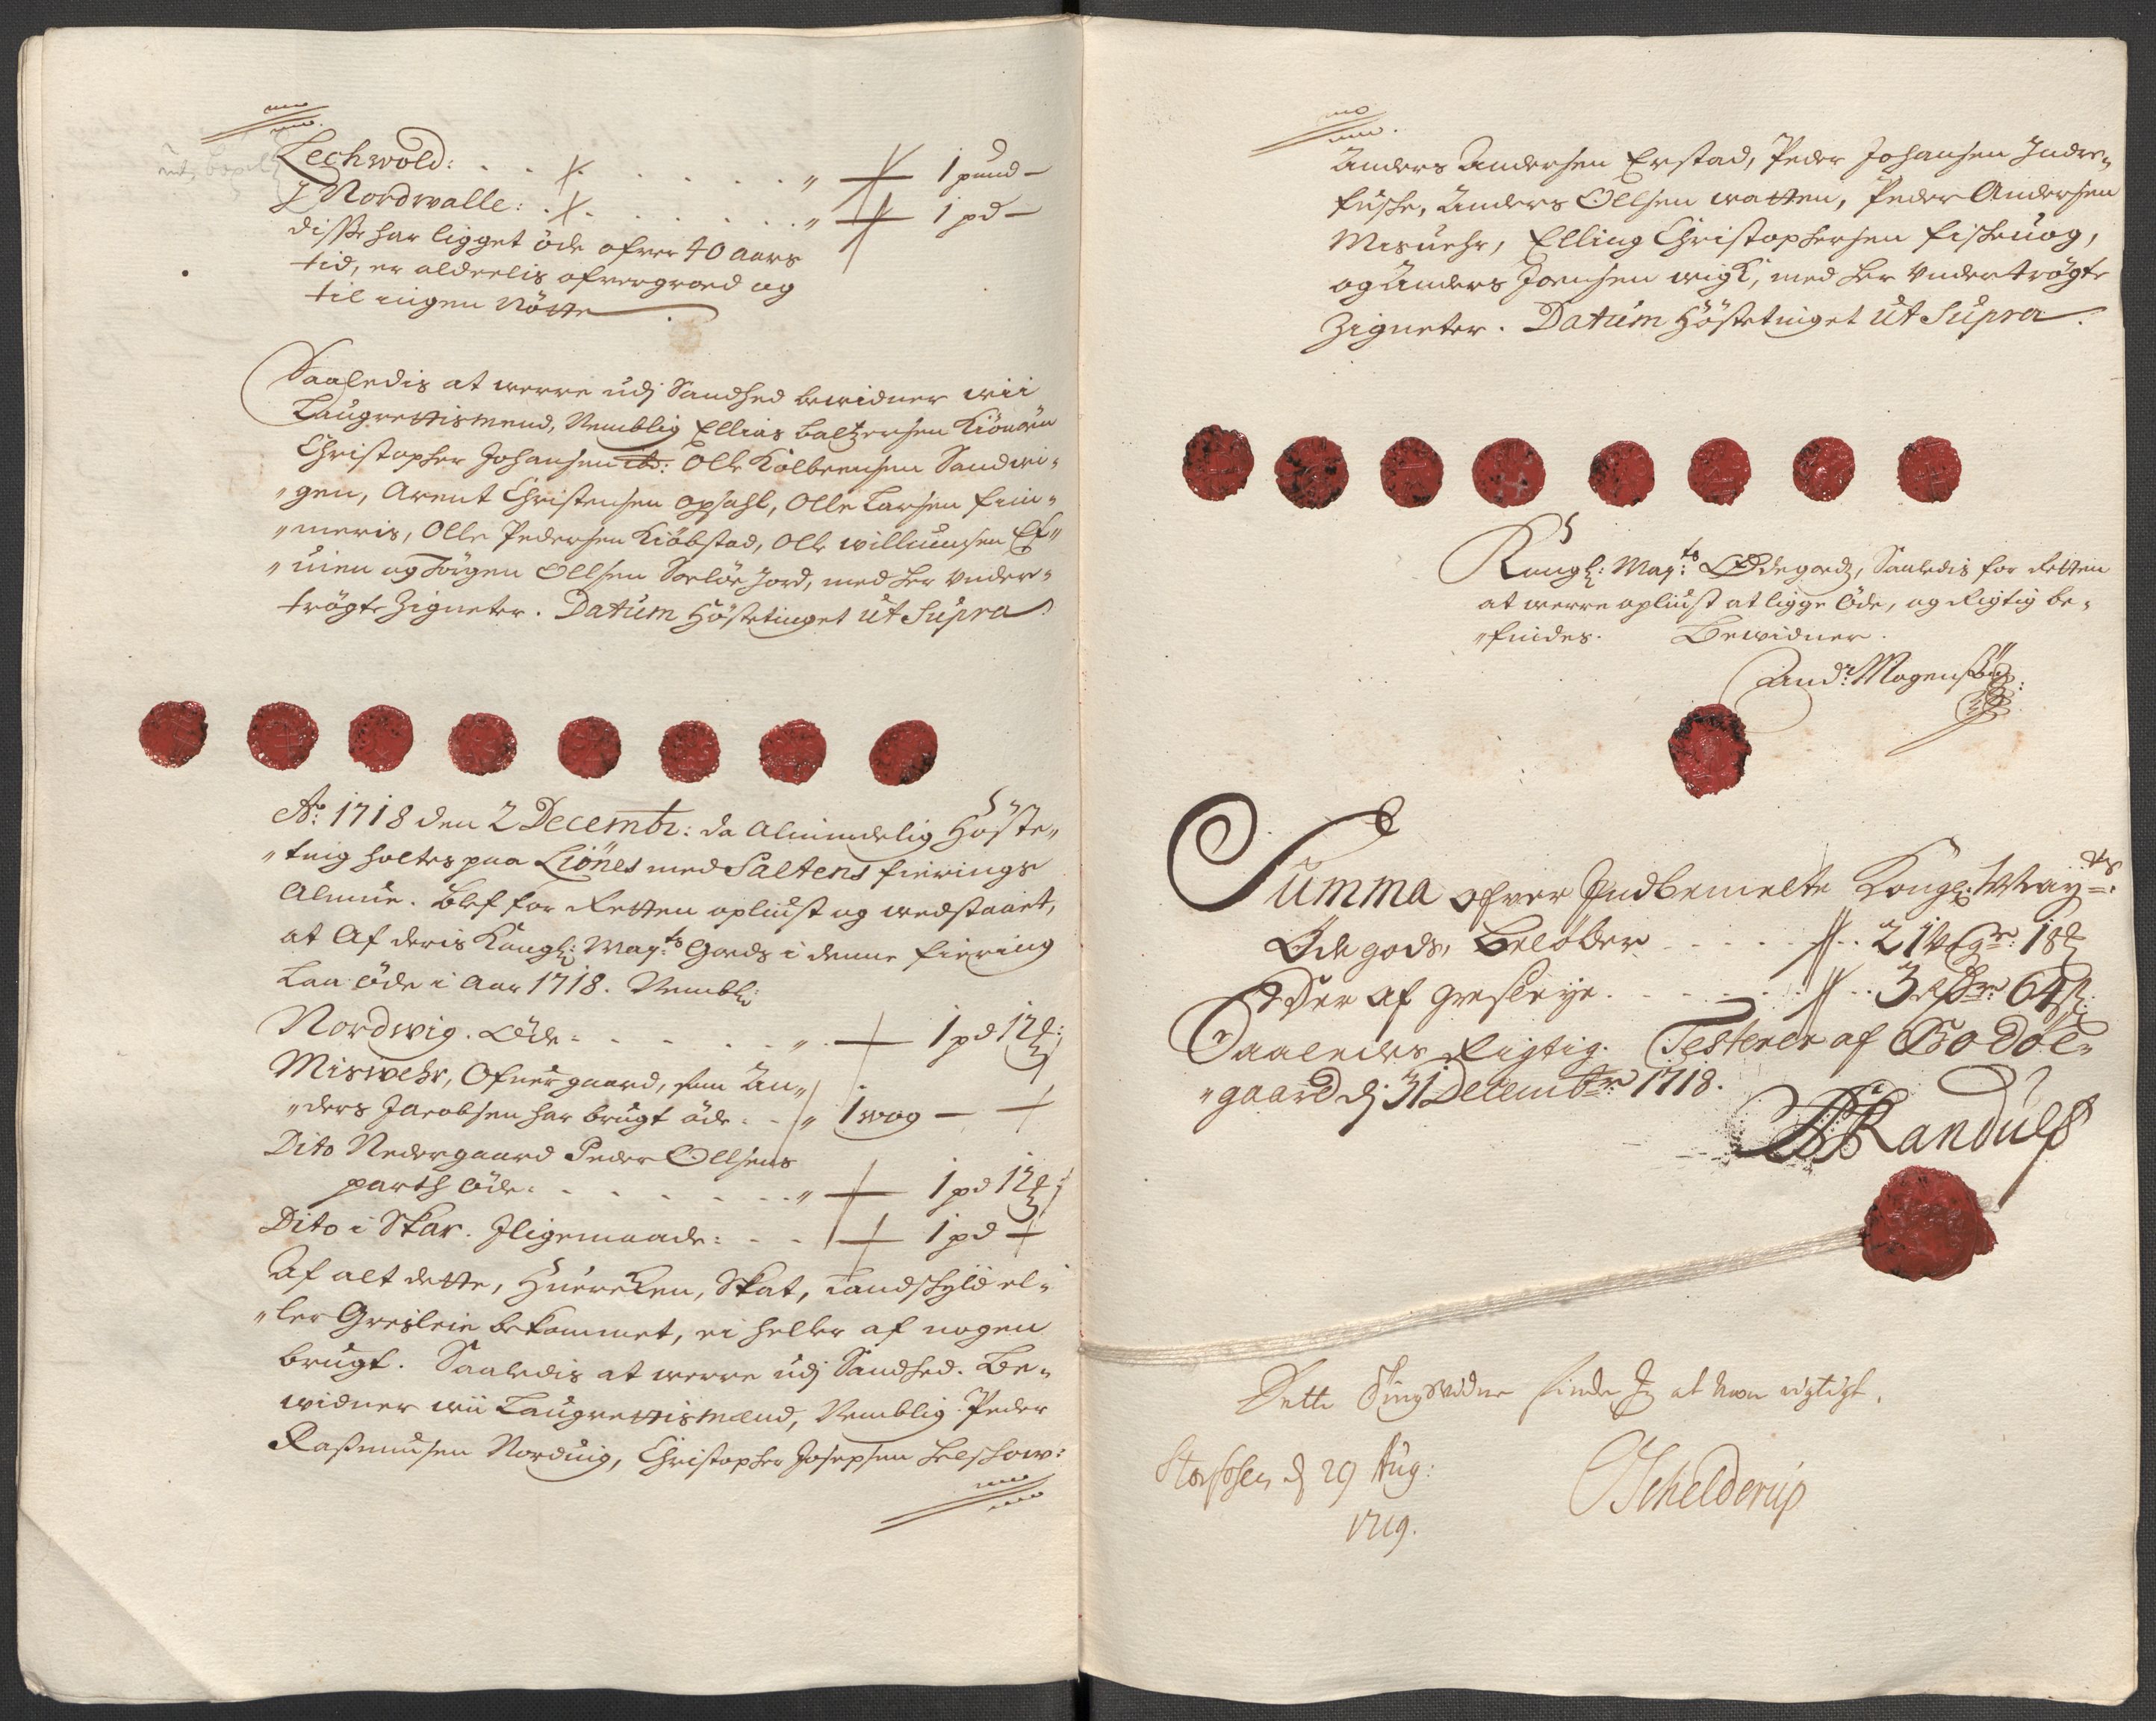 Lechwold: . . . . . . . . " 1 pund —
I Nordwalle: . . . . . . . " 1 pd —
disse har ligget öde ofver 40 aars
tid, er alderlis ofvergroed og
til ingen Nötte
Saaledis at werre udj Sandhed bewidner wii
Laugrettismend, Nemblig Ellias Baltzersen
Christopher Johansen ib: Olle Kolbeensen Sandwi-
"gen, Arent Christensen Opsahl, Olle Larsen
"meris, Olle Pedersen Kiöbstad, Olle Willumsen
og Jörgen Ollsen Soelöe Jord, med her under-
trögte Zigneter. Datum Höstetinget ut Supra
Ao: 1718 den 2 Decembr: da Almindelig Höste-
"ting holtes paa Liönes med Saltens fierings
Almue. Blef for Retten opliust og wedstaaet,
at Af deris Kongl: Mayts Gords i denne fiering
Laa öde i Aar 1718. Nembl:
Nordwig. öde: . . . . . " — 1 pd 12
Miswehr, Ofuergaard, som An-
"ders Jacobsen har brugt öde: . . " 1 wog —
Dito Nedergaard Peder Ollsens
parth öde: . . . . . . . " — 1 pd 12
Dito i Skar. Iligemaade: . . . — 1 pd
Af alt dette, Huercken, Skat, Landskyld el-
"ler Gresleie bekommet, ei heller af nogen
brugt. Saaledis at werre udj Sandhed. Be-
widner wii Laugrettismænd, Nemblig Peder
Rasmusen Norduig, Christopher Josephsen
Anders Andersen Erstad, Peder Johansen Indre-
fuske, Anders Ollsen Watten, Peder Andersen
Misuehr, Elling Christophersen fiskeuog,
og Anders Joensen wigk, med her Undertrögte
Zigneter. Datum Höstetinget ut Supra.
Kongl: Mayts Ödegodz, Saaledis for Retten
at werre opliust at ligge Öde, og Rigtig be-
"findes. Bewidner.
And: Mogens
Summa ofver Indbemelte Kongl: Mayts:
Öde gods, Belöber . . . . . 21 18
Der af gresleye . . . . . . 3 64
Saaledes Rigtig. Testerer af Bodöe-
"gaard dj 31 Decembr 1718.
Randulf
Dette Tingsvidne finder Jeg at vere rigtigt.
d 29 Aug:
1719.
Schelderup